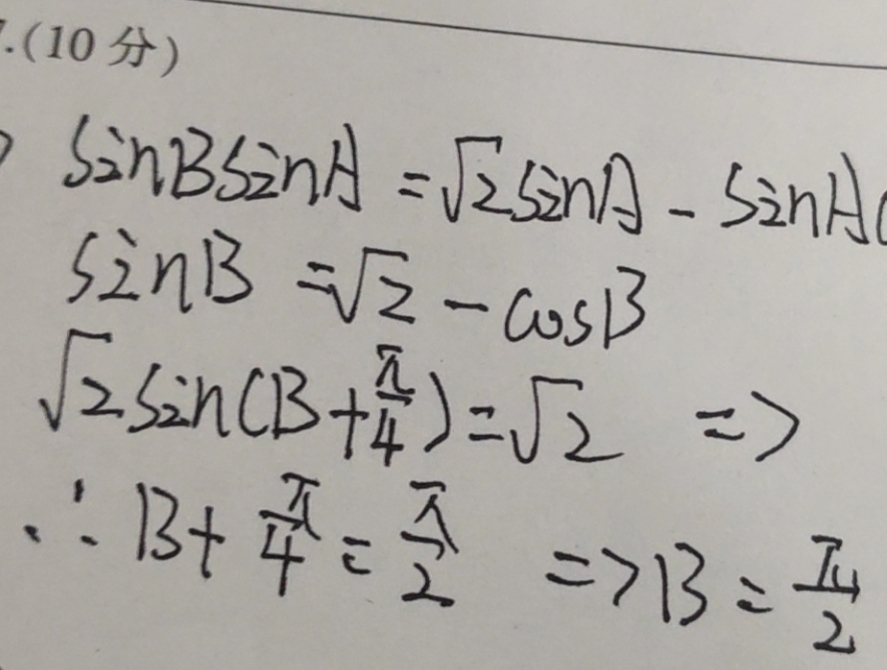 .(10分)
) sinBsinA = √2sinA - sinA
sinB = √2 - cosB
√2sin(B + π/4) = √2 =>
∴ B + π/4 = π/2 => B = π/2